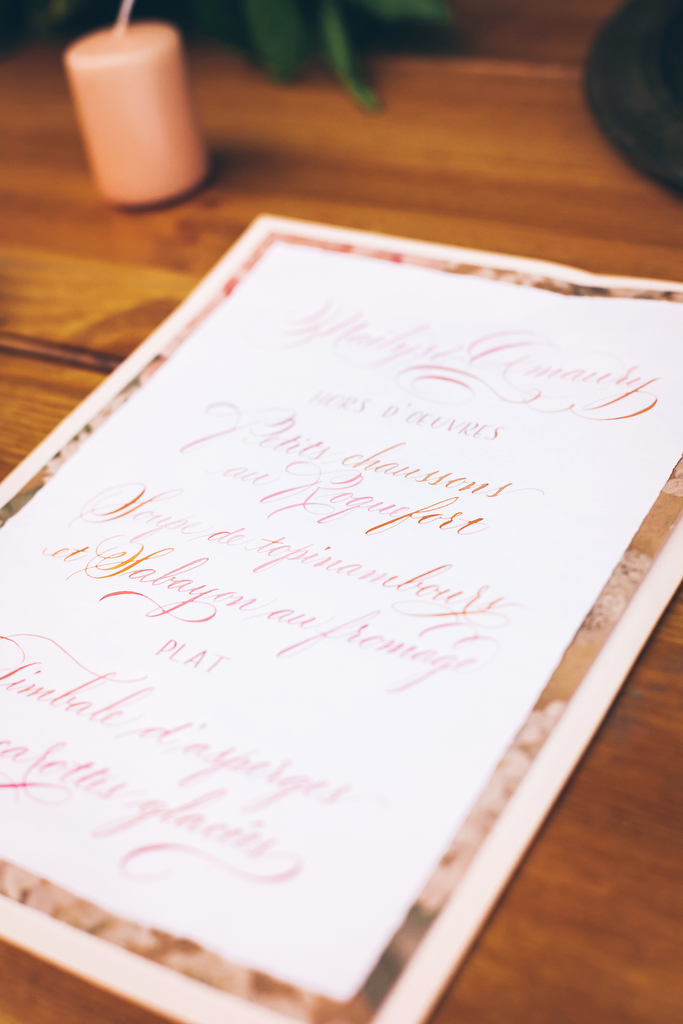 Marlyse & Amaury
HORS D'ŒUVRES
Petits chaussons
au Roquefort
Soupe de topinambours
et Sabayon au fromage
PLAT
Timbale d'asperges
carottes glacées